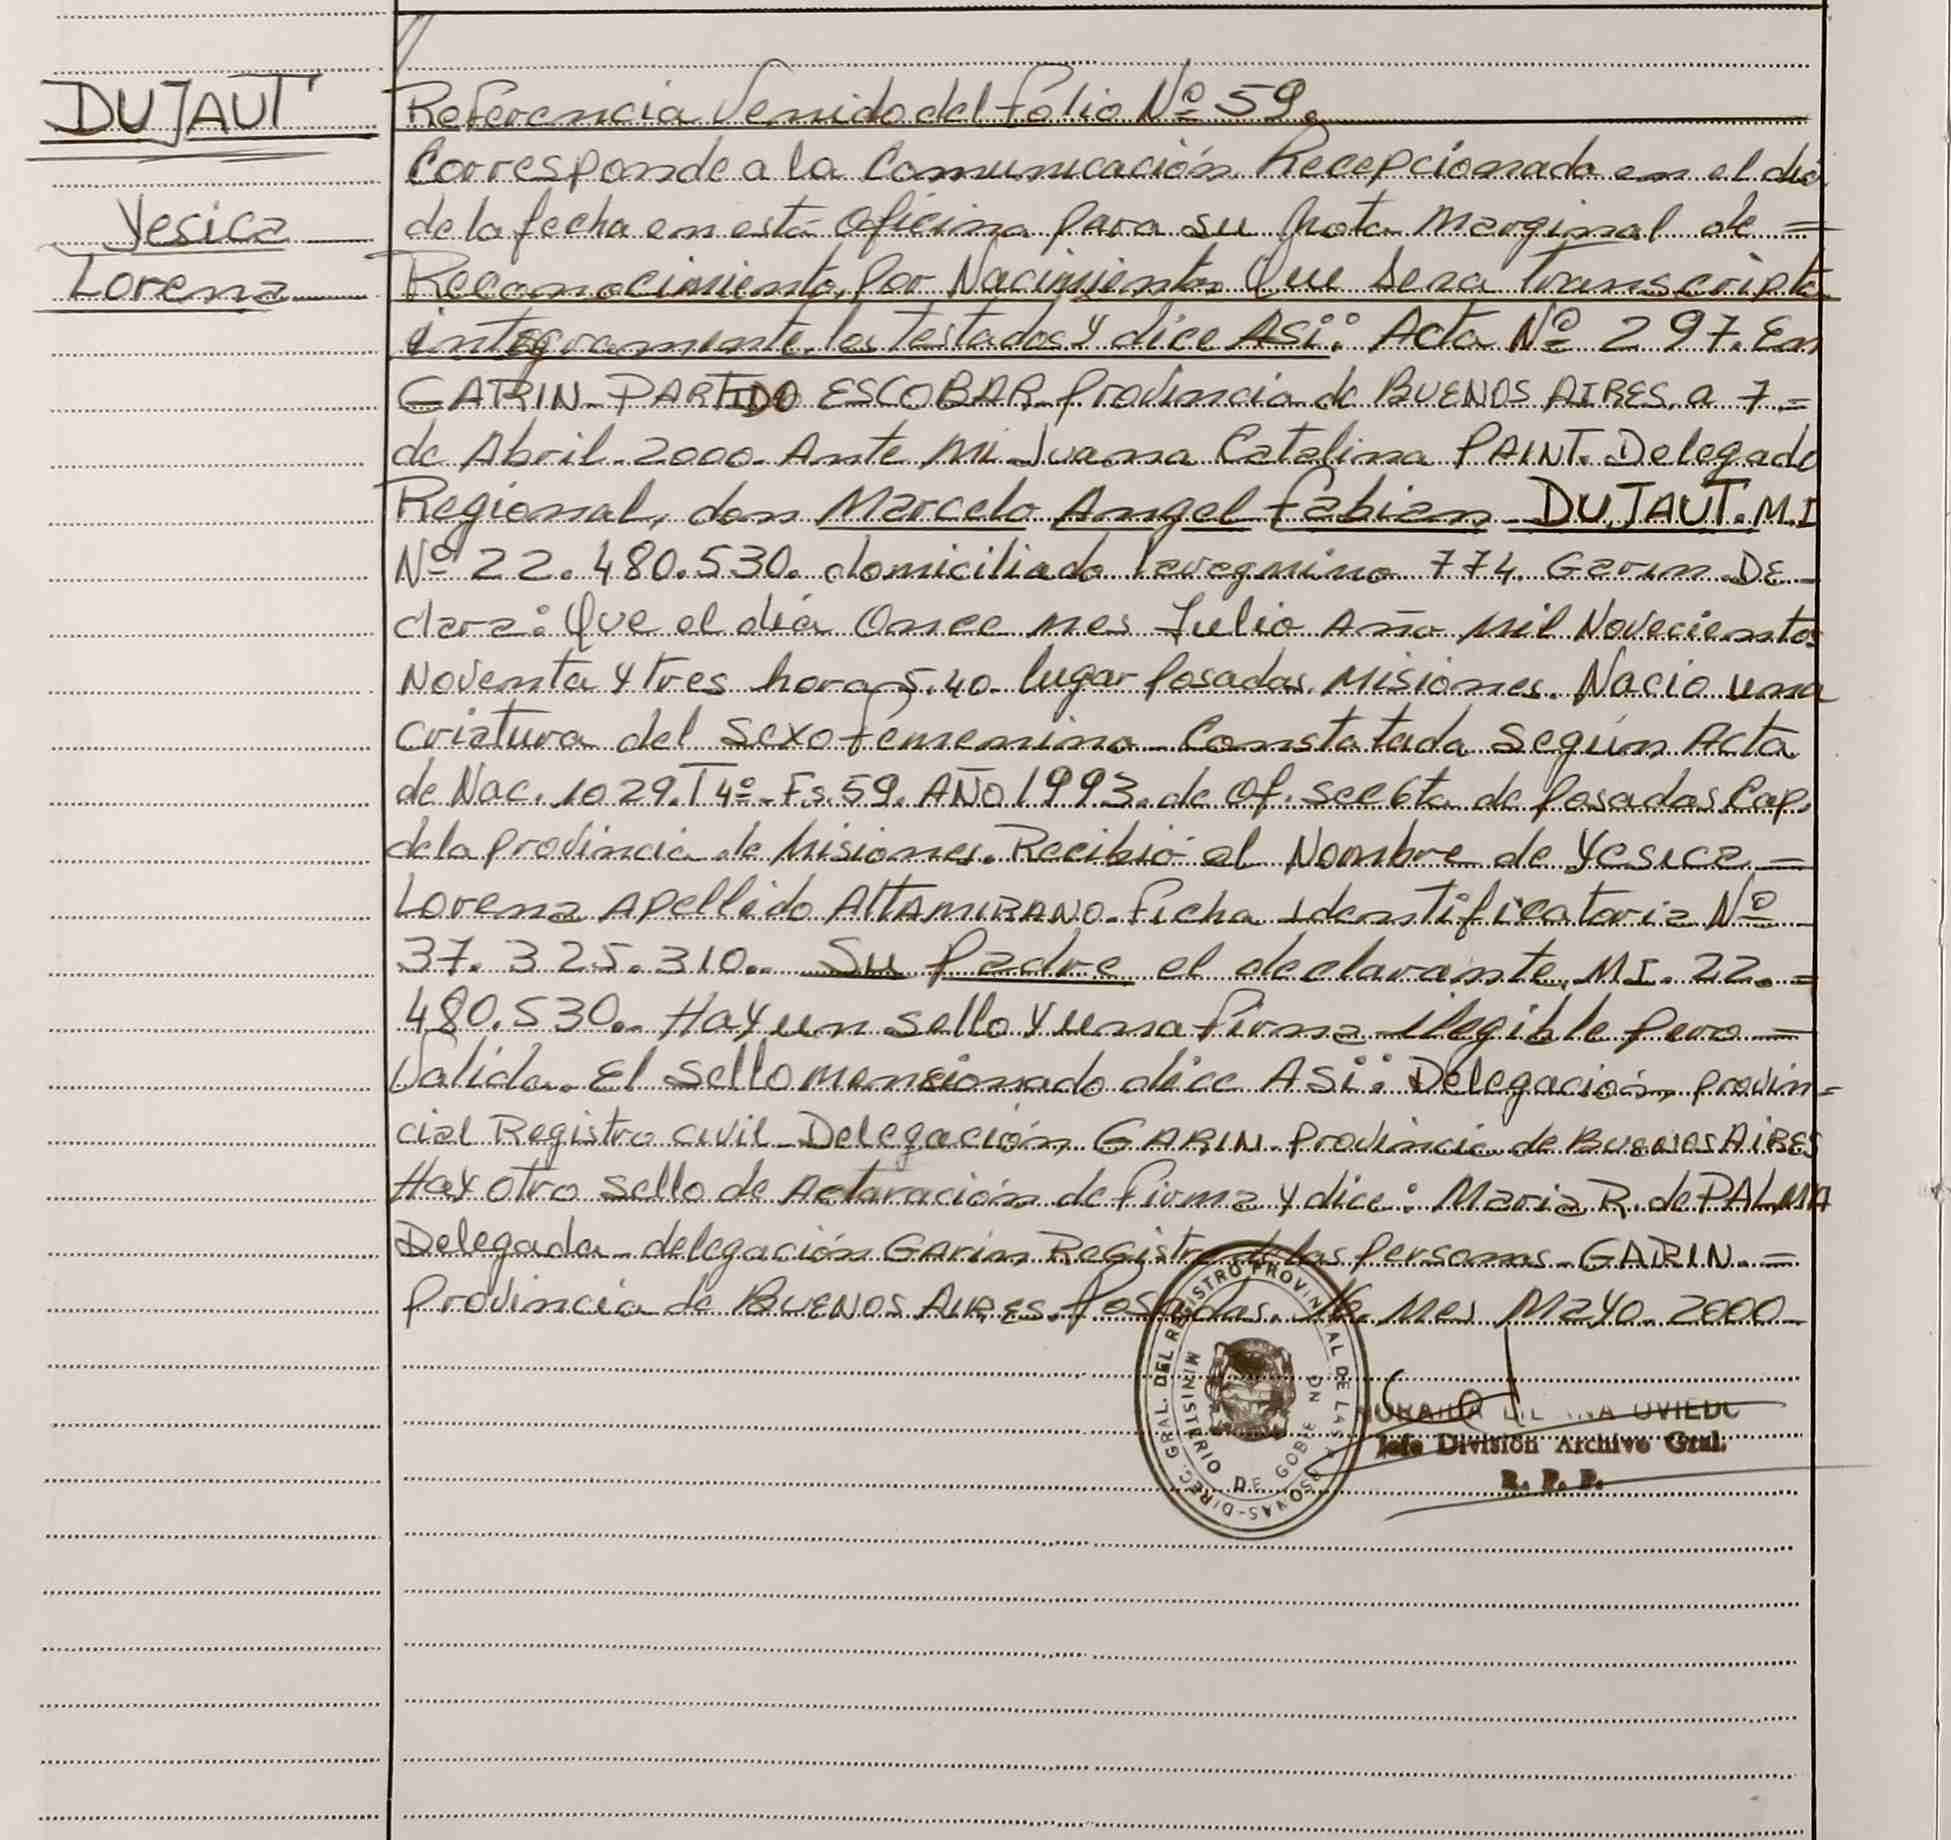 DUJAUT
Yesica
Lorena
Referencia Venido del folio Nº 59.
Corresponde a la Comunicación Recepcionada en el dia
de la fecha en está Oficina para su Nota Marginal de =
Reconocimiento por Nacimiento Que Sera Transcripta
integramente los Testados y dice Asi: Acta Nº 297. En
GARIN - PARTIDO ESCOBAR Provincia de BUENOS AIRES. a 7 =
de Abril - 2000. Ante Mi Juana Catalina PAINT. Delegado
Regional, don Marcelo Angel Fabian DUJAUT. M.I
Nº 22.480.530. domiciliado 774. Garin. DE-
clara: Que el día Once mes Julio Año Mil Novecientos
Noventa y tres hora 5.40. lugar Posadas. Misiones. Nacio una
criatura del Sexo femenino. Constatada Según Acta
de Nac. 1029. T 4º - Fs. 59. AÑO 1993. de Of. Sec 6ta de Posadas Cap.
de la Provincia de Misiones. Recibió el Nombre de Yesica =
Lorena Apellido ALTAMIRANO. Ficha Identificatoria Nº
37.325.310.. Su Padre el declarante. M.I. 22. =
480.530.. Hay un sello y una firma ilegible pero =
Valida. El Sello mensionado dice ASi: Delegación provin=
cial Registro civil - Delegación GARIN - Provincia de BUENOS AIRES
Hay otro Sello de Aclaración de firma y dice: Maria R. de PALMA
Delegada - delegación Garin Registro de las Personas - GARIN. =
Provincia de BUENOS AIRES. Posadas. 16. Mes MAYO. 2000 -
DIREC. GRAL. DEL REGISTRO PROVINCIAL DE LAS PERSONAS
MINISTERIO DE GOBIERNO
OVIEDO
Jefe División Archivo Gral.
R. P. P.